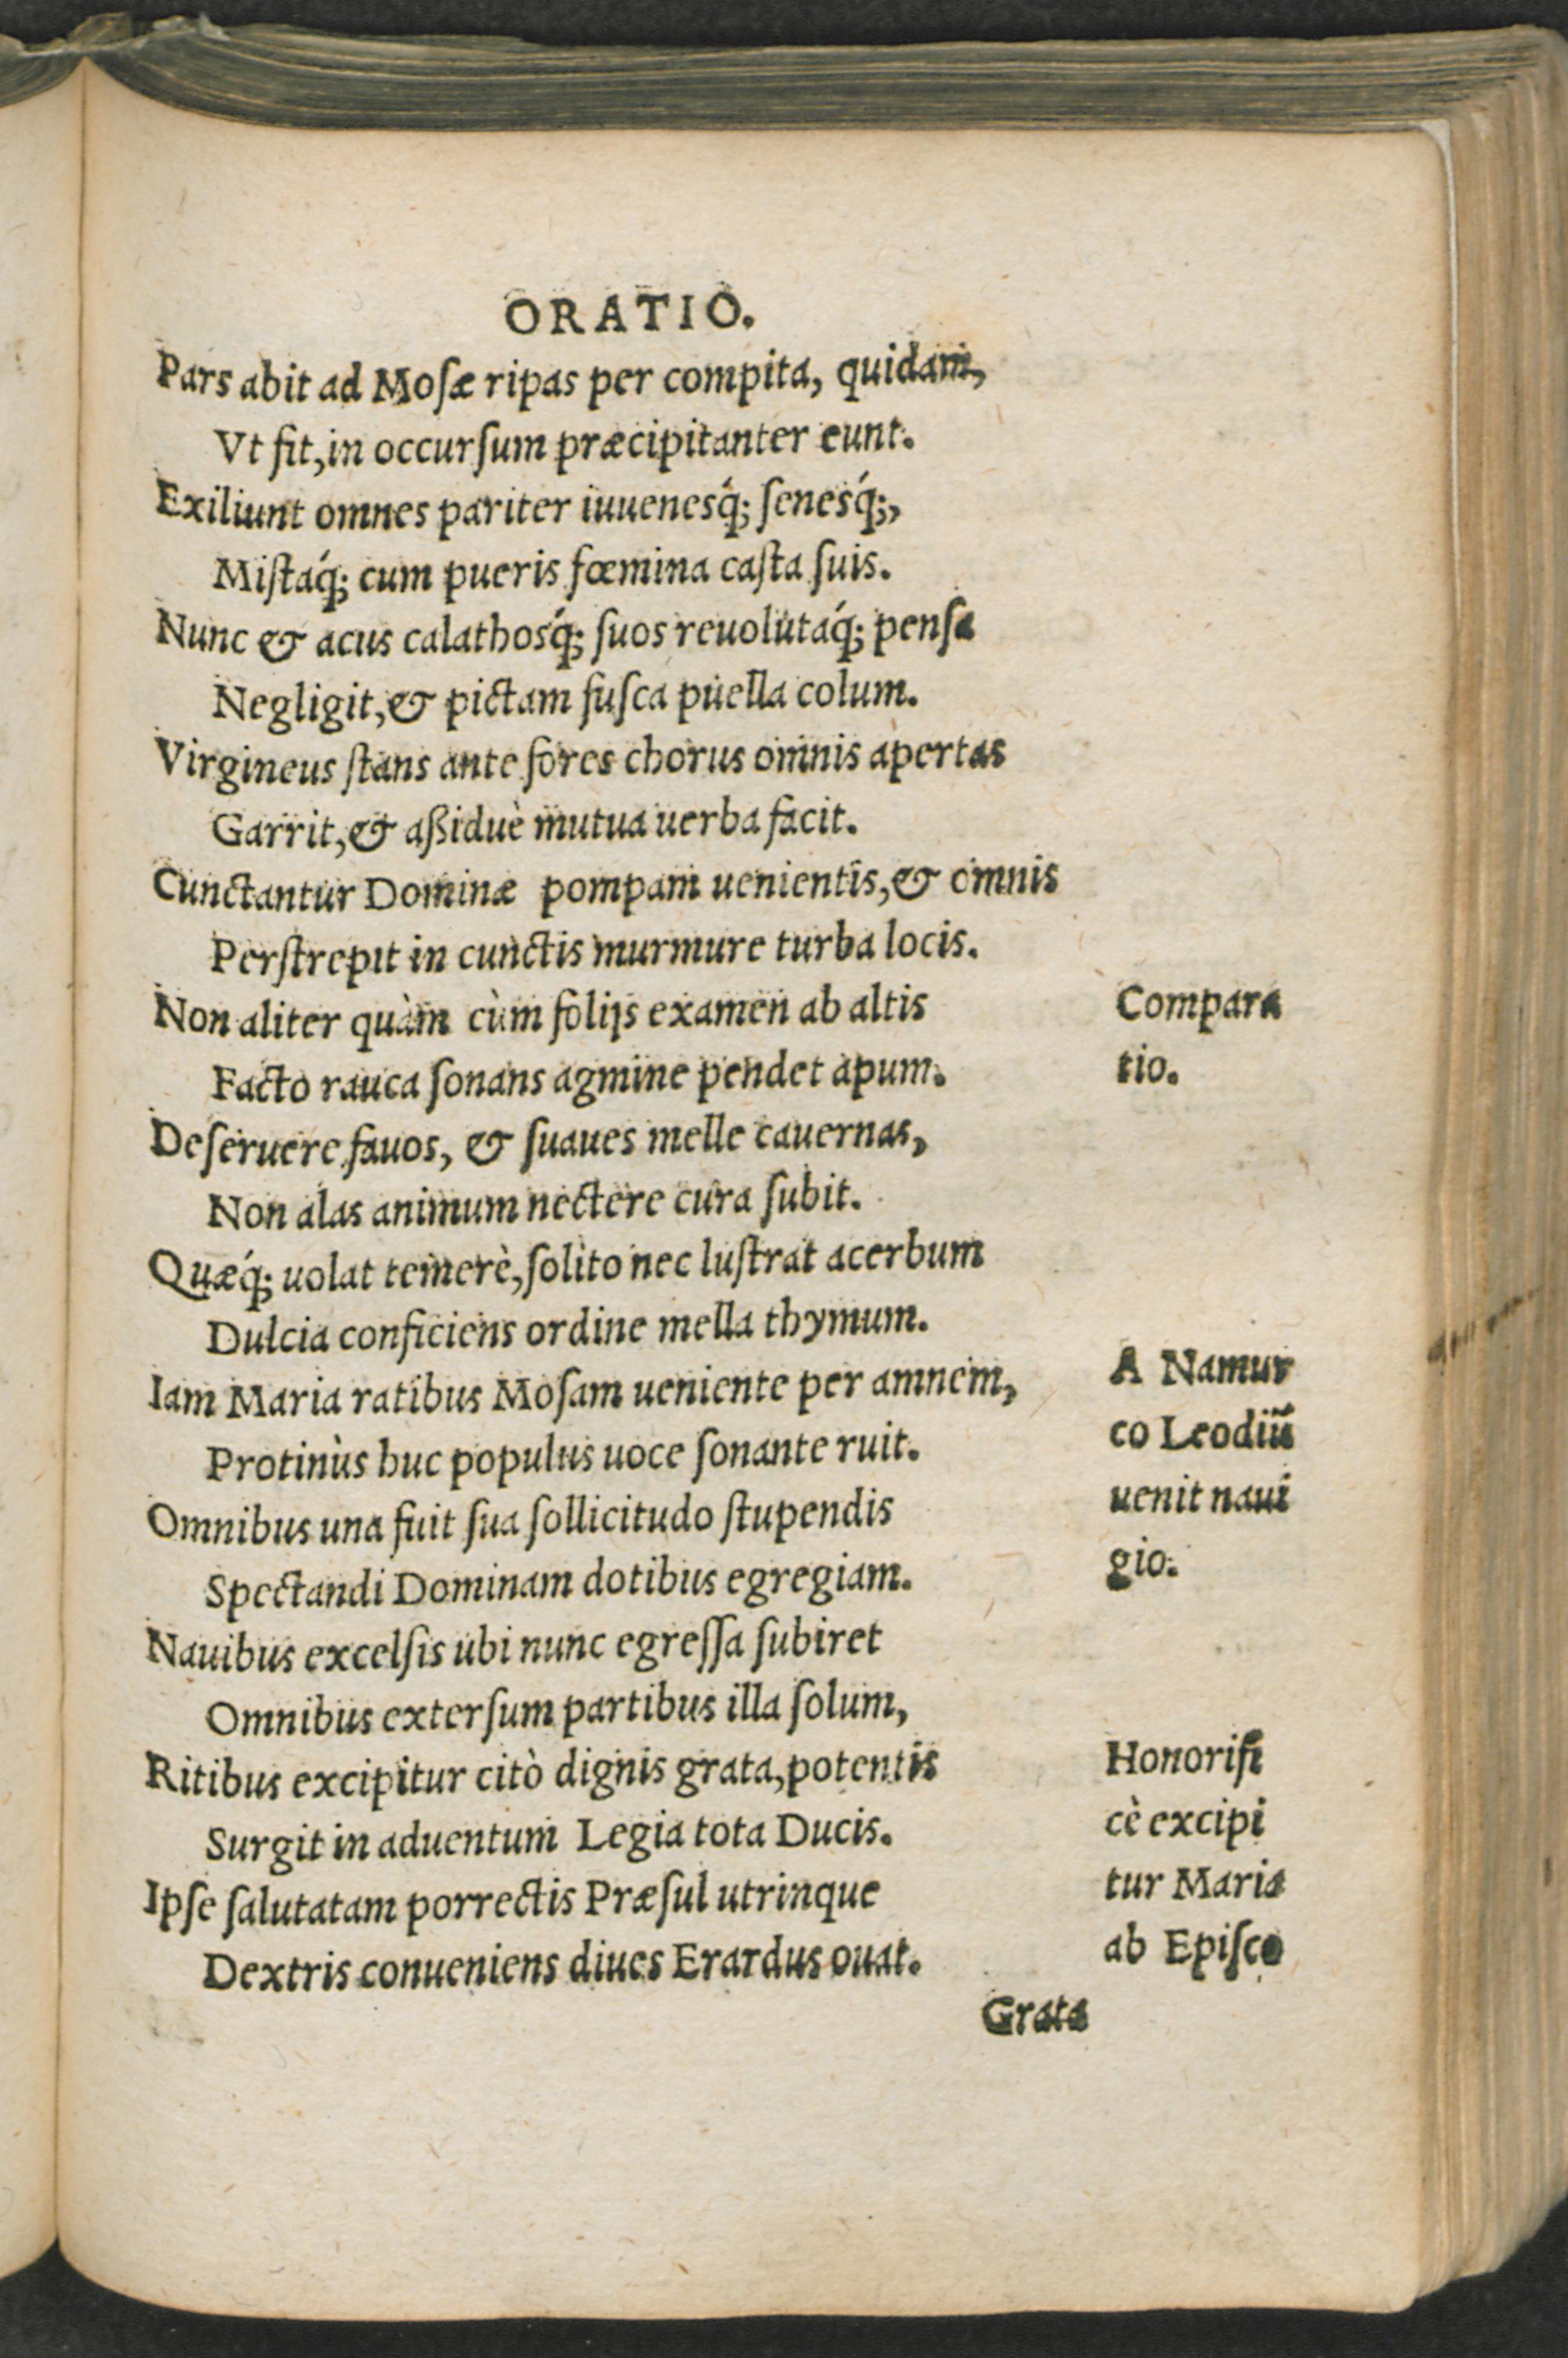 ORATIO.
Pars abit ad Moſæ ripas per compita, quidam,
Vt fit, in occurſum præcipitanter eunt.
Exiliunt omnes pariter iuuenesq́; ſenesq́;,
Miſtaq́; cum pueris fœmina caſta ſuis.
Nunc & acus calathosq́; ſuos reuolutaq́; penſa
Negligit, & pictam fuſca puella colum.
Virgineus ſtans ante fores chorus omnis apertas
Garrit, & aßiduè mutua uerba facit.
Cunctantur Dominæ pompam uenientis, & omnis
Perſtrepit in cunctis murmure turba locis.
Non aliter quàm cùm folijs examen ab altis
Facto rauca ſonans agmine pendet apum.
Compara
tio.
Deſeruere fauos, & ſuaues melle cauernas,
Non alas animum nectere cura ſubit.
Quæq́; uolat temerè, ſolito nec luſtrat acerbum
Dulcia conficiens ordine mella thymum.
Iam Maria ratibus Moſam ueniente per amnem,
Protinùs huc populus uoce ſonante ruit.
Omnibus una fuit ſua ſollicitudo ſtupendis
Spectandi Dominam dotibus egregiam.
A Namur
co Leodiū
uenit naui
gio.
Nauibus excelſis ubi nunc egreſſa ſubiret
Omnibus exterſum partibus illa ſolum,
Ritibus excipitur citò dignis grata, potentis
Surgit in aduentum Legia tota Ducis.
Ipſe ſalutatam porrectis Præſul utrinque
Dextris conueniens diues Erardus ouat.
Honorifi
cè excipi
tur Maria
ab Epiſco
Grata